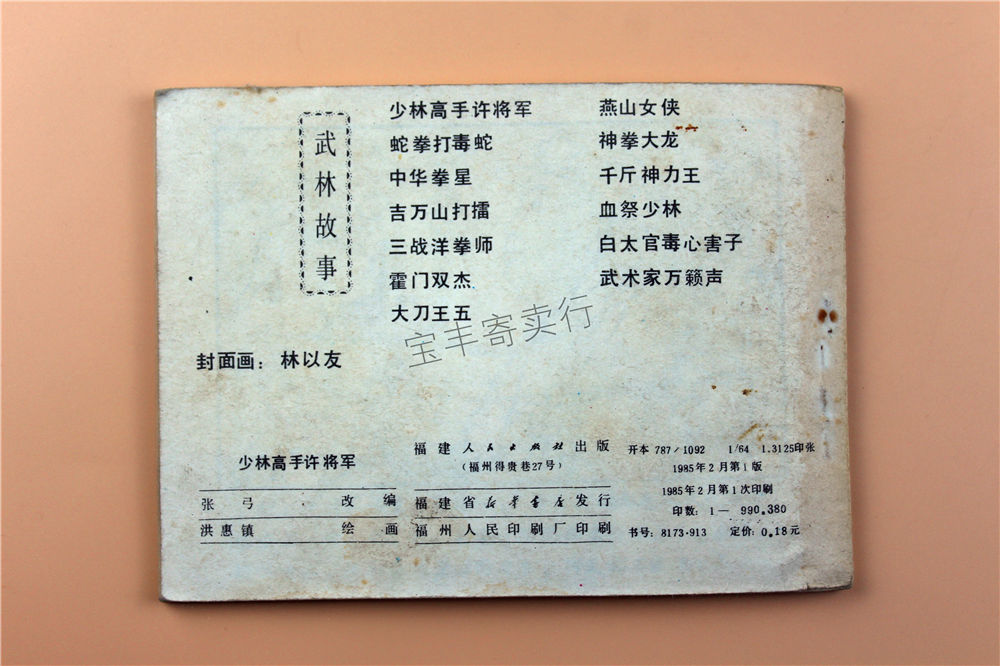 武林故事
少林高手许将军
蛇拳打毒蛇
中华拳星
吉万山打擂
三战洋拳师
霍门双杰
大刀王五
燕山女侠
神拳大龙
千斤神力王
血祭少林
白太官毒心害子
武术家万籁声
宝丰寄卖行
封面画：林以友
少林高手许将军
张弓 改编
洪惠镇 绘画
福建人民出版社出版
(福州得贵巷27号)
福建省新华书店发行
福州人民印刷厂印刷
开本 787/1092 1/64 1.3125印张
1985年2月第1版
1985年2月第1次印刷
印数：1— 990.380
书号：8173·913 定价：0.18元